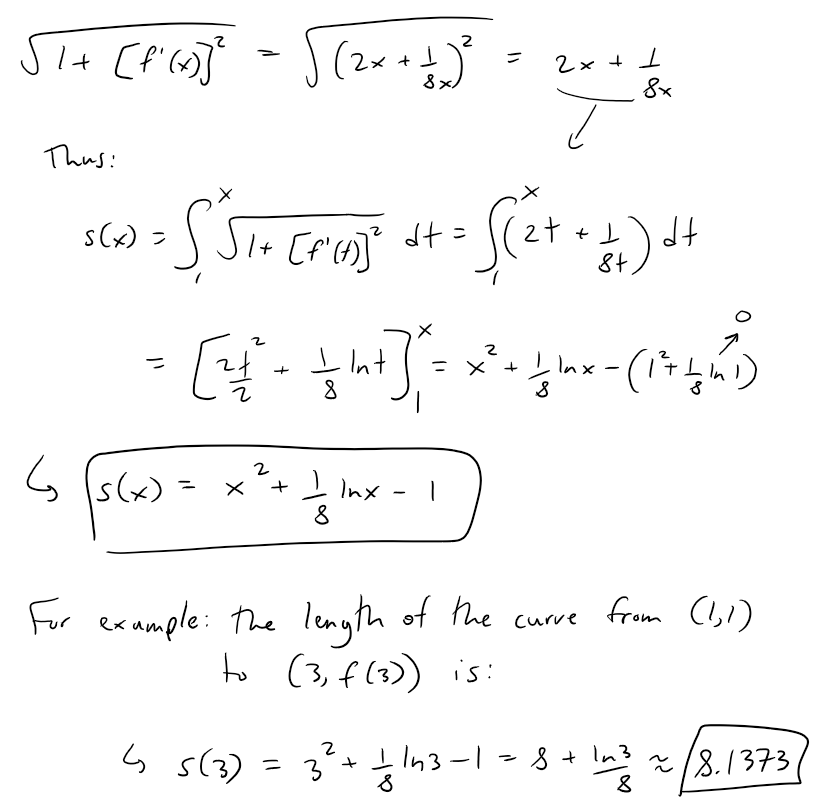 √(1 + [f'(x)]²) = √((2x + 1/8x)²) = 2x + 1/8x
Thus:
s(x) = ∫₁ˣ √(1 + [f'(t)]²) dt = ∫₁ˣ (2t + 1/8t) dt
= [2t²/2 + 1/8 ln t]₁ˣ = x² + 1/8 ln x - (1² + 1/8 ln 1) ↗ 0
↳ s(x) = x² + 1/8 ln x - 1
For example: the length of the curve from (1,1)
to (3, f(3)) is:
↳ s(3) = 3² + 1/8 ln 3 - 1 = 8 + ln 3/8 ≈ 8.1373